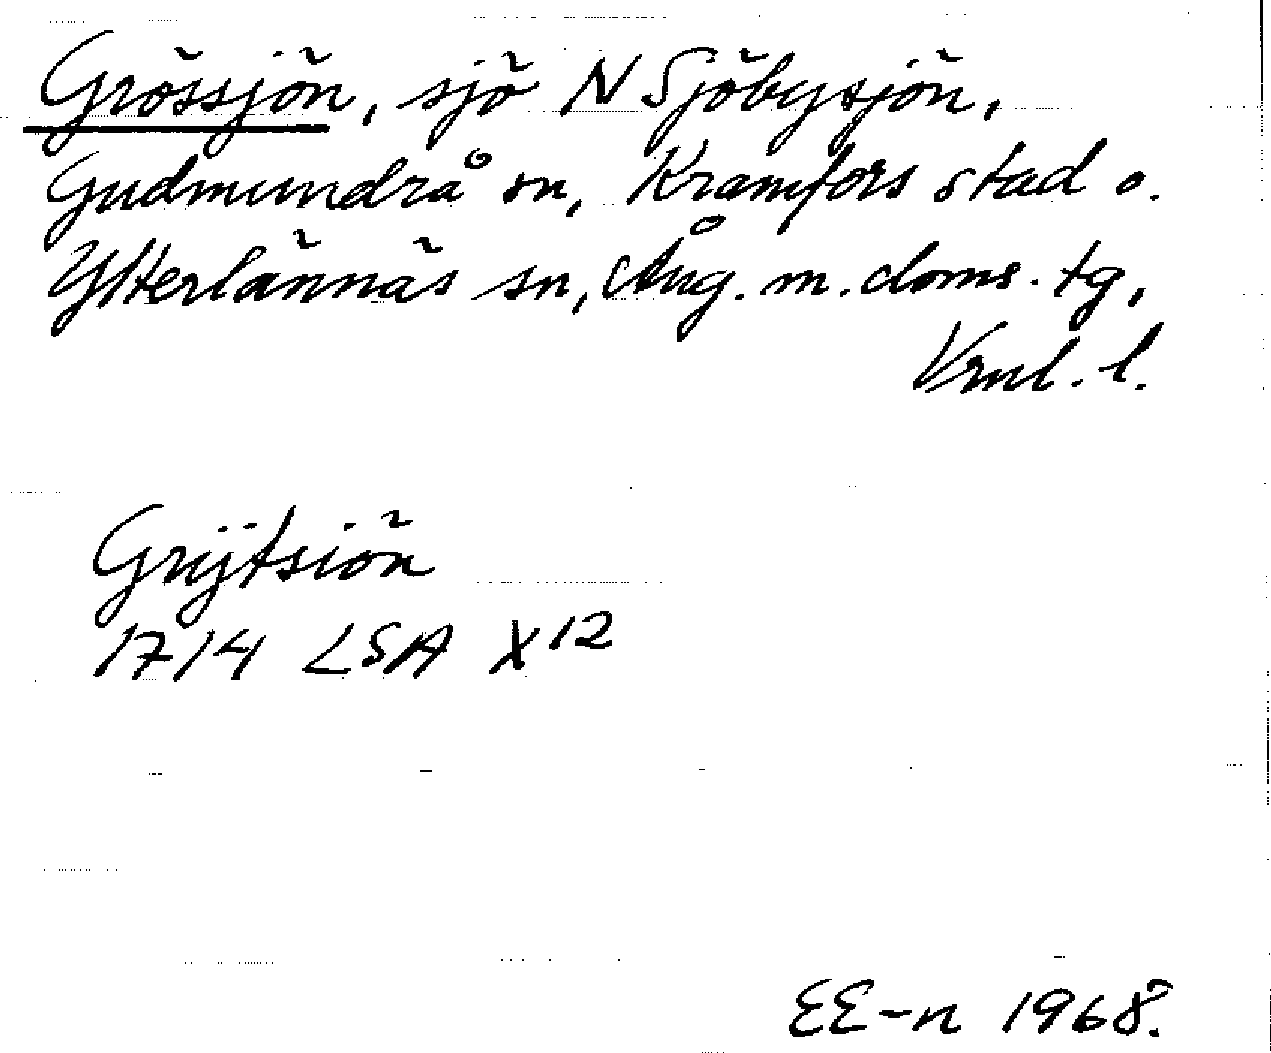 Grössjön, sjö N Sjöbysjön,
Gudmundrå sn, Kramfors stad o.
Ytterlännäs sn, Ång. m. doms. tg,
Vrnl. l.
Grÿtsiön
1714 LSA X12
EE-n 1968.